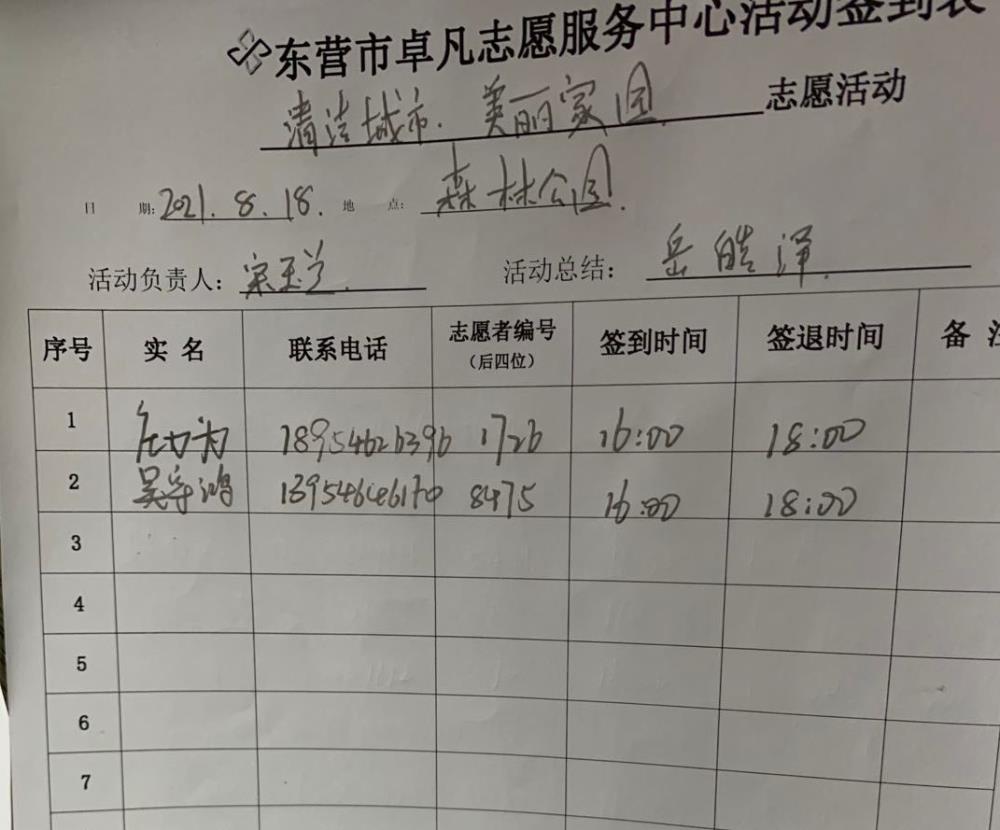 东营市卓凡志愿服务中心活动签到表
清洁城市.美丽家园 志愿活动
日 期: 2021.8.18. 地 点: 森林公园.
活动负责人: 宋玉兰. 活动总结: 岳皓泽.
序号 实 名 联系电话 志愿者编号（后四位） 签到时间 签退时间 备 注
1 18954626396 1726 16:00 18:00
2 吴学鸿 13954646170 8475 16:00 18:00
3
4
5
6
7